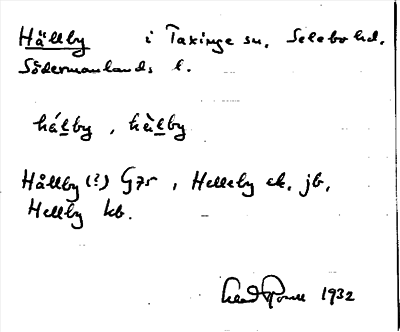 Hällby i Taxinge sn. Selebo hd.
Södermanlands l.
hálby, hä̀lby
Hållby (?) G75, Helleby ek. jb,
Hellby kb.
1932